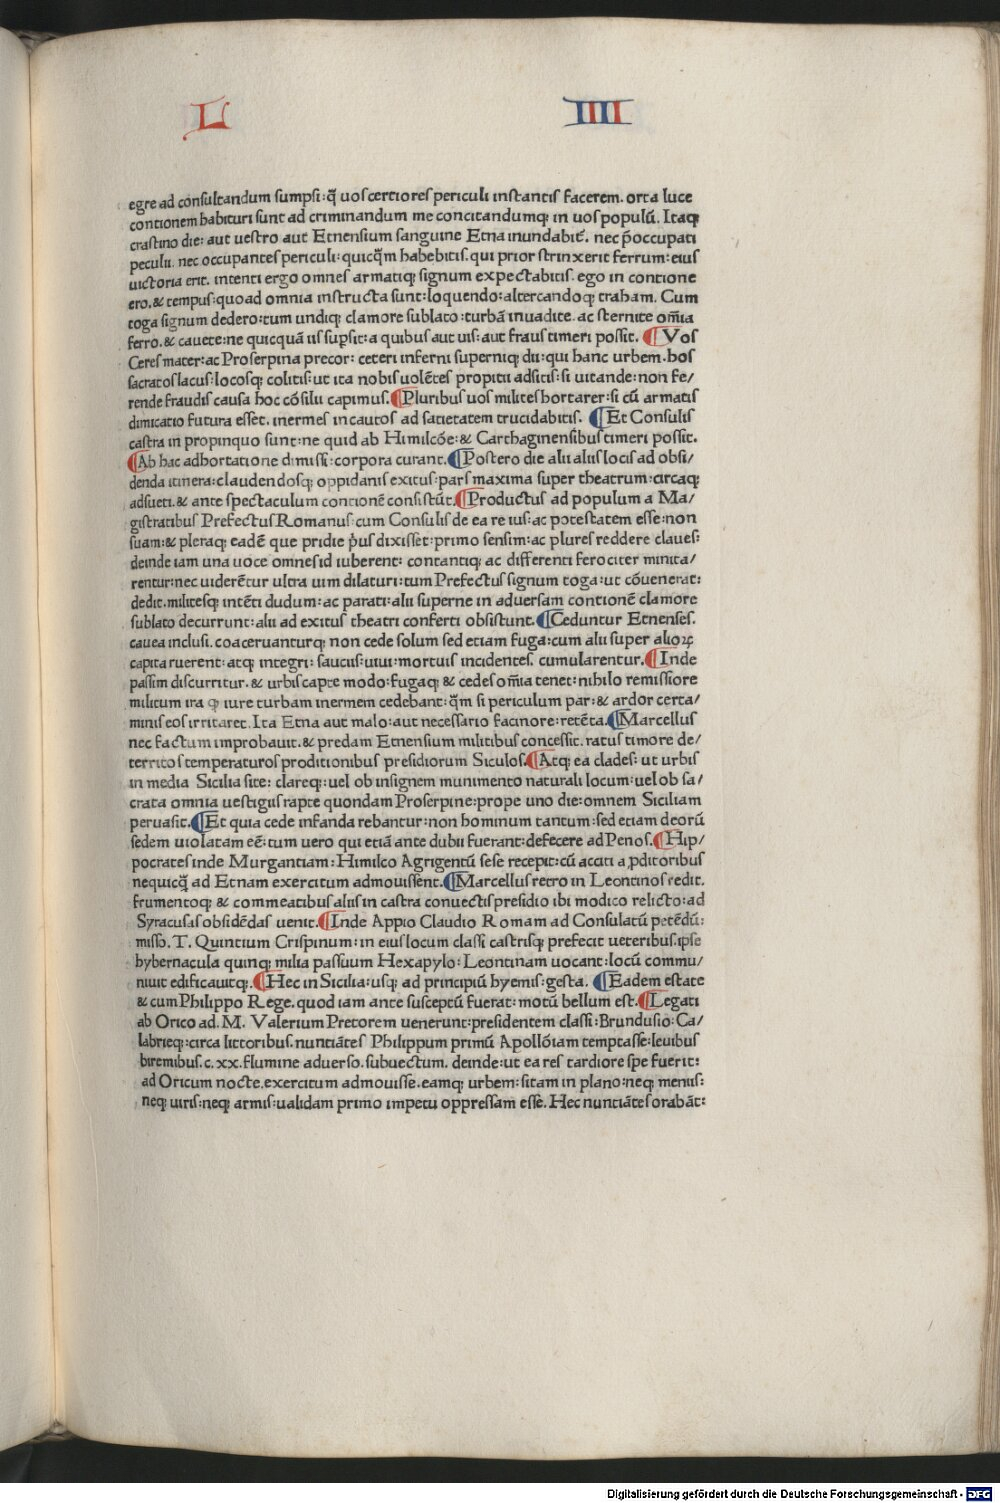 L IIII
egre ad consultandum sumpsi: q̃ uos certiores periculi instantis facerem. orta luce
contionem habituri sunt ad criminandum me concitandumq; in uos populũ. Itaq;
crastino die: aut uestro aut Etnensium sanguine Etna inundabit̃. nec p̃occupati
peculii. nec occupantes periculi: quicq̃m habebitis. qui prior strinxerit ferrum: eius
uictoria erit. intenti ergo omnes armatiq; signum expectabitis. ego in contione
ero. & tempus: quoad omnia instructa sunt: loquendo: altercandoq; traham. Cum
toga signum dedero: tum undiq; clamore sublato: turbã inuadite. ac sternite om̃ia
ferro. & cauete: ne quicquã iis sup̱sit: a quibus aut uis: aut fraus timeri possit. ¶ Vos
Ceres mater: ac Proserpina precor: ceteri inferni superniq; dii: qui hanc urbem. hos
sacratos lacus: locosq; colitis: ut ita nobis uolẽtes propitii adsitis: si uitande: non fe/
rende fraudis causa hoc cõsilii capimus. ¶ Pluribus uos milites hortarer: si cũ armatis
dimicatio futura esset. inermes incautos ad satietatem trucidabitis. ¶ Et Consulis
castra in propinquo sunt: ne quid ab Himilcõe: & Carthaginensibus timeri possit.
¶ Ab hac adhortatione dimissi: corpora curant. ¶ Postero die alii aliis locis ad obsi/
denda itinera: claudendosq; oppidanis exitus: pars maxima super theatrum: circaq;
adsueti. & ante spectaculum contionẽ consistũt. ¶ Productus ad populum a Ma/
gistratibus Prefectus Romanus: cum Consulis de ea re ius: ac potestatem esse: non
suam: & pleraq; eadẽ que pridie p̱us dixisset: primo sensim: ac plures reddere claues:
deinde iam una uoce omnes id iuberent: contantiq; ac differenti ferociter minita/
rentur: nec uiderẽtur ultra uim dilaturi: tum Prefectus signum toga: ut cõuenerat:
dedit. militesq; intẽti dudum: ac parati: alii superne in aduersam contionẽ clamore
sublato decurrunt: alii ad exitus theatri conferti obsistunt. ¶ Ceduntur Etnenses.
cauea inclusi. coaceruanturq; non cede solum sed etiam fuga: cum alii super alioꝝ
capita ruerent: atq; integri: saucus: uiui: mortuis incidentes. cumularentur. ¶ Inde
passim discurritur. & urbis capte modo: fugaq; & cedes om̃ia tenet: nihilo remissiore
militum ira ꝙ iure turbam inermem cedebant: q̃m si periculum par: & ardor certa/
minis eos irritaret. Ita Etna aut malo: aut necessario facinore: retẽta. ¶ Marcellus
nec factum improbauit. & predam Etnensium militibus concessit. ratus timore de/
territos temperaturos proditionibus presidiorum Siculos. ¶ Atq; ea clades: ut urbis
in media Sicilia site: clareq;: uel ob insignem munimento naturali locum: uel ob sa/
crata omnia uestigiis rapte quondam Proserpine: prope uno die: omnem Siciliam
peruasit. ¶ Et quia cede infanda rebantur: non hominum tantum: sed etiam deorũ
sedem uiolatam eẽ: tum uero qui etiã ante dubii fuerant: defecere ad Penos. ¶ Hip/
pocrates inde Murgantiam: Himilco Agrigentũ sese recepit: cũ acciti a p̱ditoribus
nequicq̃ ad Etnam exercitum admouissent. ¶ Marcellus retro in Leontinos redit.
frumentoq; & commeatibus aliis in castra conuectis presidio ibi modico relicto: ad
Syracusas obsidẽdas uenit. ¶ Inde Appio Claudio Romam ad Consulatũ petẽdũ:
misso. T. Quintium Crispinum: in eius locum classi castrisq; prefecit ueteribus. ipse
hybernacula quinq; milia passuum Hexapylo: Leontinam uocant: locũ commu/
niuit edificauitq;. ¶ Hec in Sicilia: usq; ad principiũ hyemis: gesta. ¶ Eadem estate
& cum Philippo Rege. quod iam ante susceptũ fuerat: motũ bellum est. ¶ Legati
ab Orico ad. M. Valerium Pretorem uenerunt: presidentem classi: Brundusio: Ca/
labrieq;: circa littoribus. nunciãtes Philippum primũ Apollõiam temptasse: leuibus
biremibus. c. xx. flumine aduerso. subuectum. deinde: ut ea res tardiore spe fuerit:
ad Oricum nocte. exercitum admouisse. eamq; urbem: sitam in plano: neq; meniis:
neq; uiris: neq; armis: ualidam primo impetu oppressam esse. Hec nunciãtes orabãt:
Digitalisierung gefördert durch die Deutsche Forschungsgemeinschaft - DFG